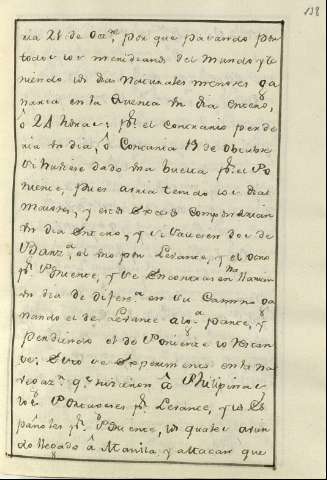 138
ria 21 de Oct.re, por que pasando por
todos los meridianos del Mundo y te
niendo los dias Naturales menores ga
naria en la Buelta un dia entero,
ô 24 horas; p.r el contrario perde
ria un dia, ô Contaria 19 de Octubre
si hubiese dado una buelta p.r el Po
niente, pues avria tenido los dias
maiores, y este exceso compondrian
un dia entero, y si saliesen dos de
el uno por Levante, y el otro
p.r Poniente, y se encontrasen
un dia de difer.a en su Camino ga
nando el de Levante a la parte, y
perdiendo el de Poniente
Esto se experimentó en la na
vegaz.n q.e hicieron â Philipinas
los Portugueses p.r Levante, y los Es
pañoles p.r Poniente, los quales avien
do llegado â Manila, y attacan que